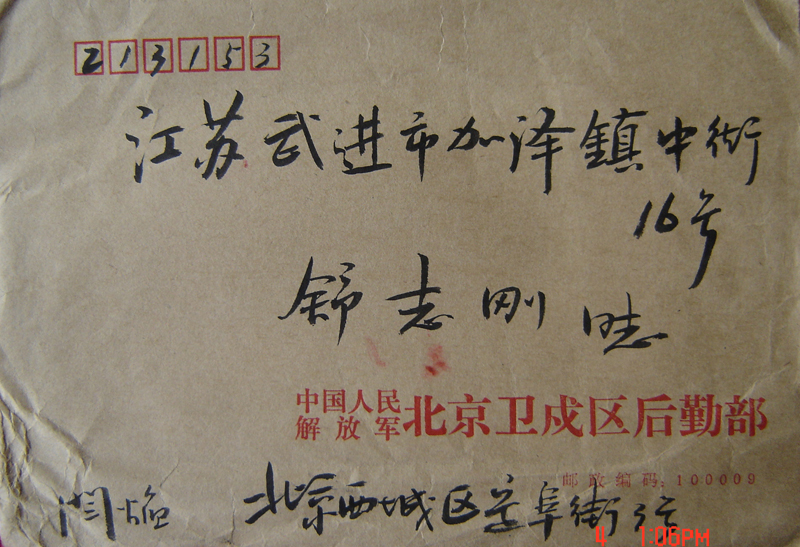 213153
江苏武进市加泽鎮中街
16号
舒志刚 同志
中国人民解放军北京卫戍区后勤部
邮政编码:100009
北京西城区
4 1:06PM